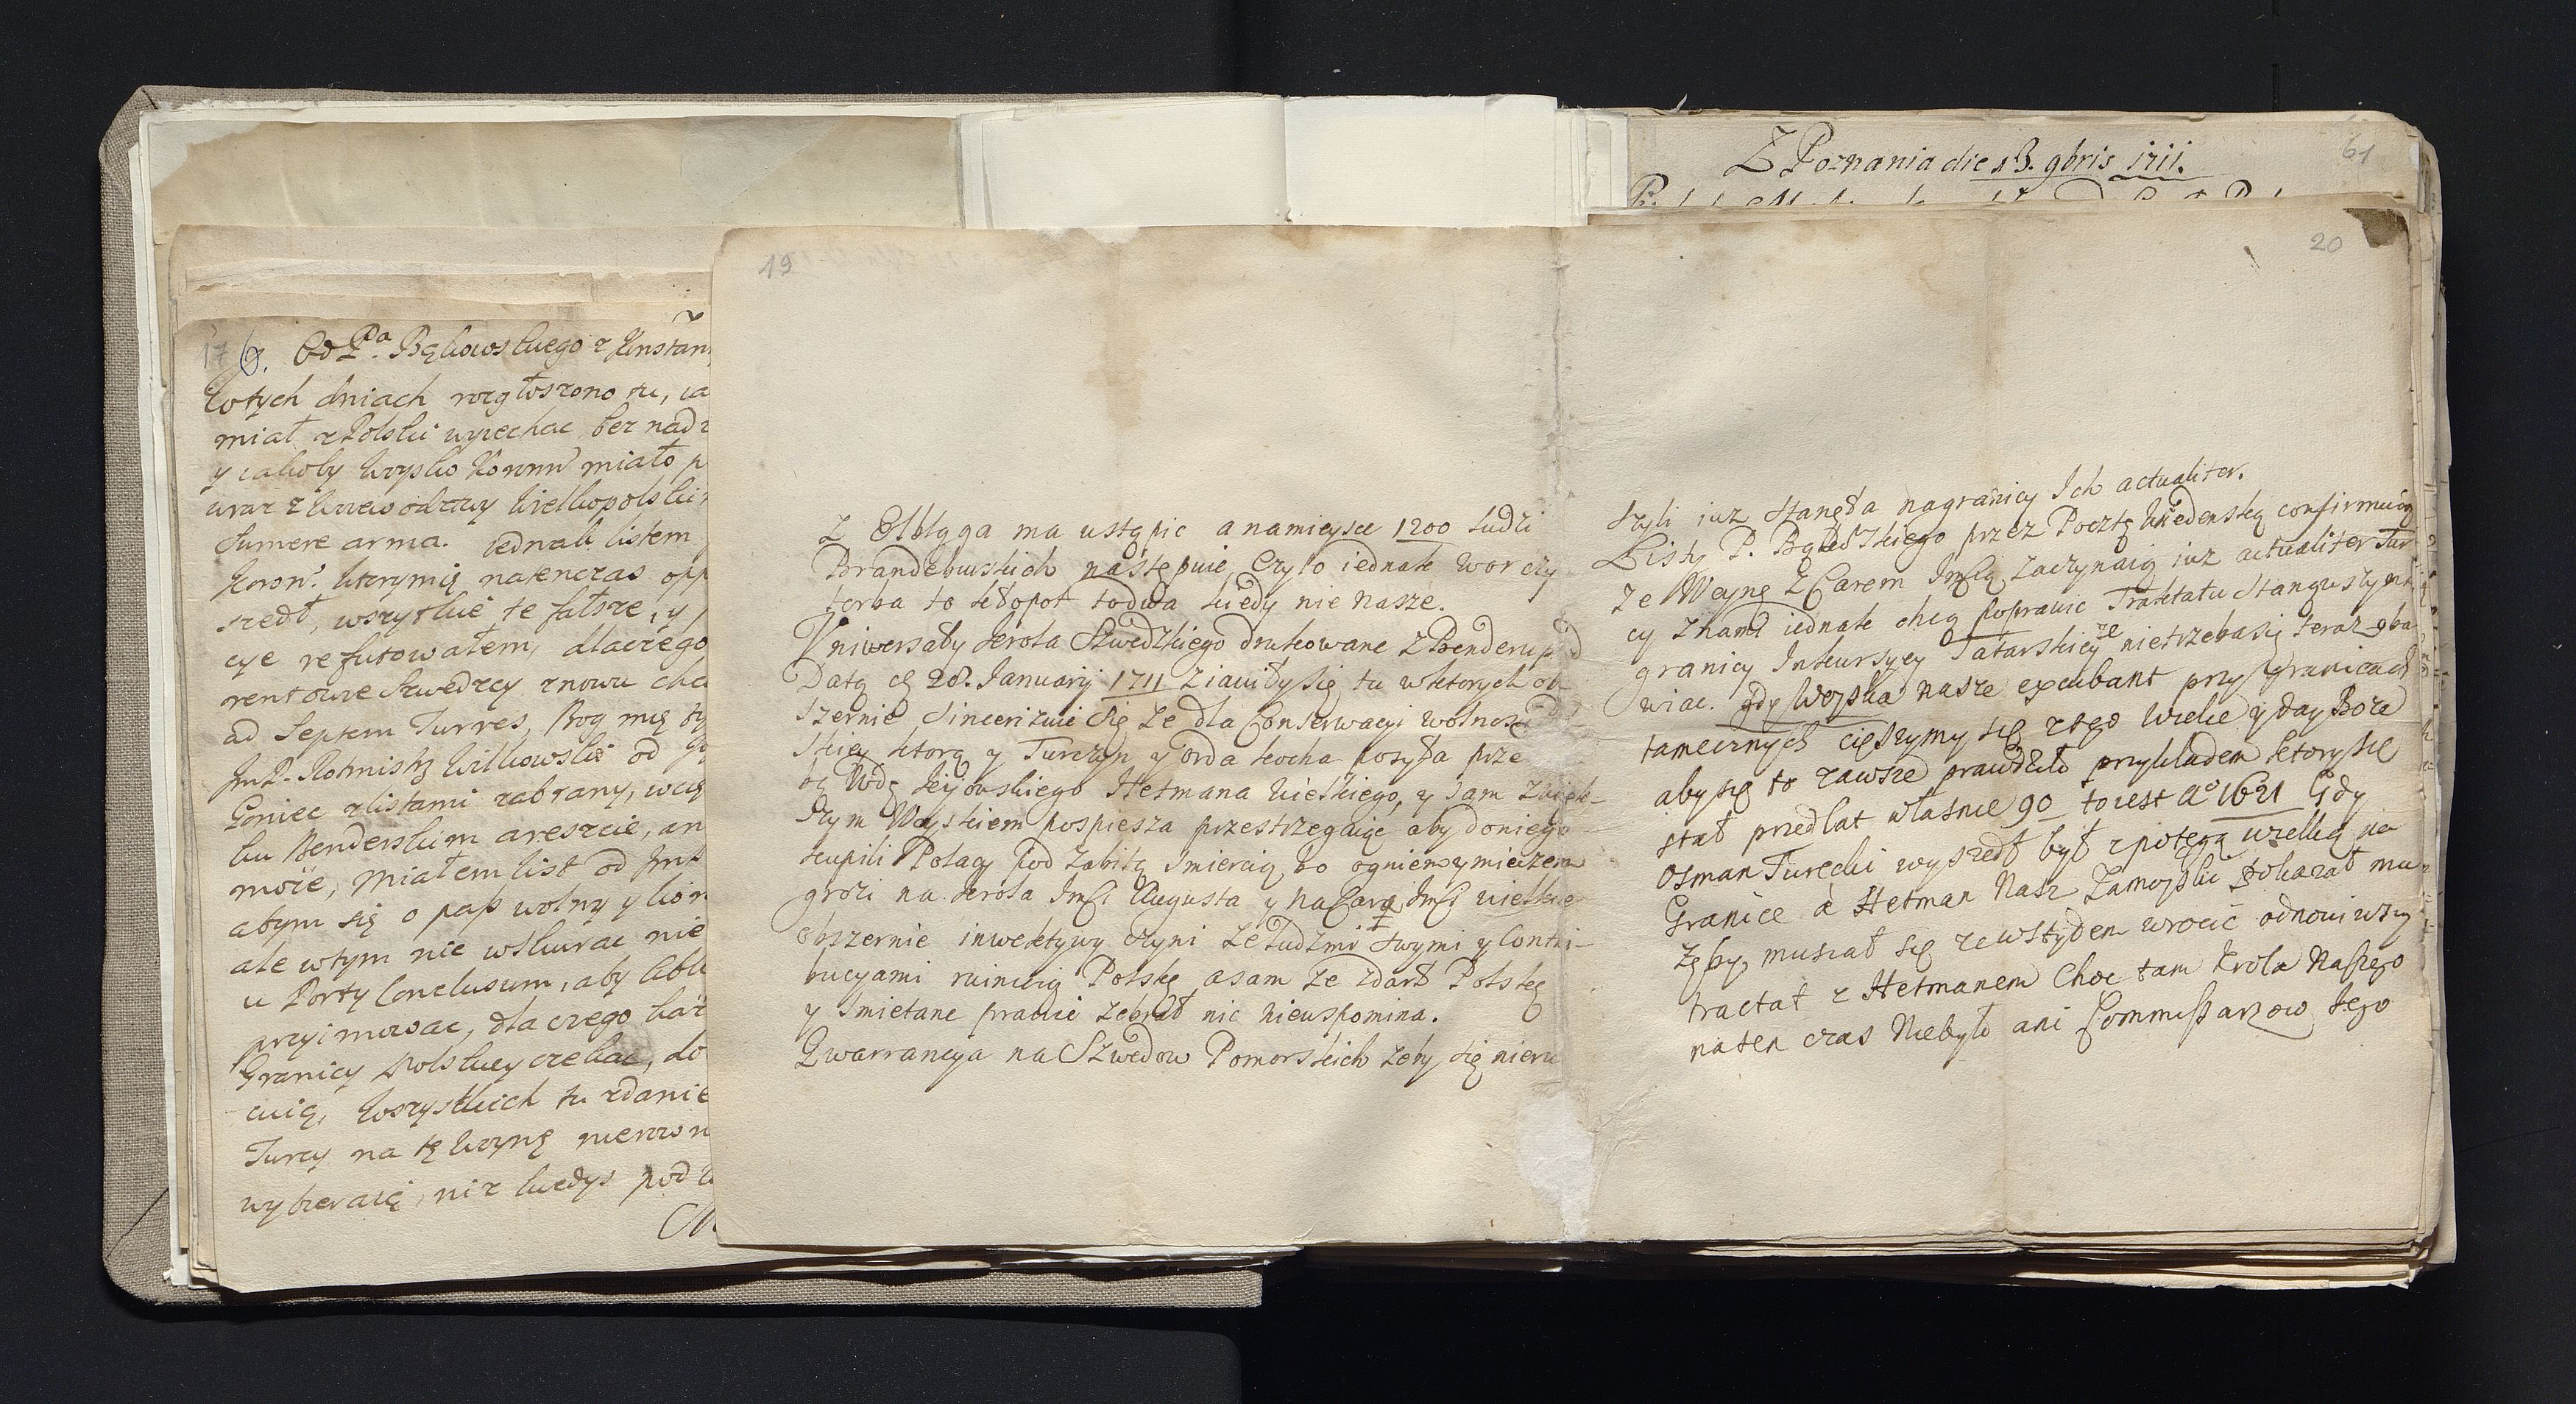 Z Poznania die 13. 9bris 1711.
61
17 6. Od Pa. Bąkowskiego z Konstan
Wtych dniach rozgłoszono tu, ia
miał z Polski wyiechac bez nad
y iakoby Woysko Koronn miało p
wraz z Woiewodztwy Wielkopolski
sumere arma. iednak listem
Koron. ktorymię natenczas opp
szedł, wszytkie te fałsze, y
cye refutowałem, dlaczego
rentowie Szwedzcy znowu chc
ad Septem Turres, Bog mię
JmP. Rotmistrz Witkowski od
Goniec z listami zabrany, w
ku Benderskim areszcie, an
może, miałem list od Jm
abym się o pasz wolny y kon
ale wtym nic wskurac nie
u Porty Conclusum, aby
przyimowac, dla czego
Granicy Polskiey czekac, do
cuię, Wszystkich tu zdanie
Turcy na tę Woynę nierown
wybieraią, niz kiedys pod
19
Z Elbląga ma ustąpic a namieysce 1200 ludzi
Brandeburskich następuie, Czyło iednak wor czy
torba to kłopot todwa kiedy nie nasze.
Vniwersały Krola Szwedzkiego drukowane z Benderu pod
Datą 28. Januarij 1711 ziawiły się tu wktorych ob
szernie sincerizuie się ze dla Conserwacyi wolnos
skiey ktorą y Turczyn y Orda kocha posyła prze
Wdę Kijowskiego Hetmana Wielkiego, y sam zwięk-
szym Woyskiem pospiesza przestrzegaiąc aby doniego
kupili Polacy pod zabitą smiercią bo ogniem y mieczem
grozi na Krola Jmsci Augusta y na Cara Jmsci wielkie
obszernie inwektywy czyni ze ludzmi swymi y Contri-
bucyami ruinuią Polskę asam ze zdarł Polskę
y smietane prawie zebrał nic niewspomina.
Gwarrancya na Szwedow Pomorskich zeby się nieru
20
szyli iuz stanęła nagranicy Ich actualiter.
Listy P. Bąkowskiego przez Pocztę Wiedenską confirmuią
ze Woynę z Carem Jmscią zaczynaią iuz actualiter Tur
cy z nami iednak chcą poprawic Traktatu stanąwszy
granicy Inkursyey Tatarskiey nietrzebasię teraz oba
wiac. gdy Woyska nasze excubant przy Granicach
tamecznych cięszymy się ztego wielce y day Boze
aby się to zawsze prawdziło przykładem ktory się
stał przedlat własnie 90 toiest Ao 1621 Gdy
Osman Turecki wyszedł był z potęgą wielką na
Granice a Hetman Nasz Zamoyski pokazał mu
zęby, musiał się zewstydem wrocic odnowiwszy
tractat z Hetmanem Choc tam Krola Naszego
naten czas Niebyło ani Commissarzow Iego